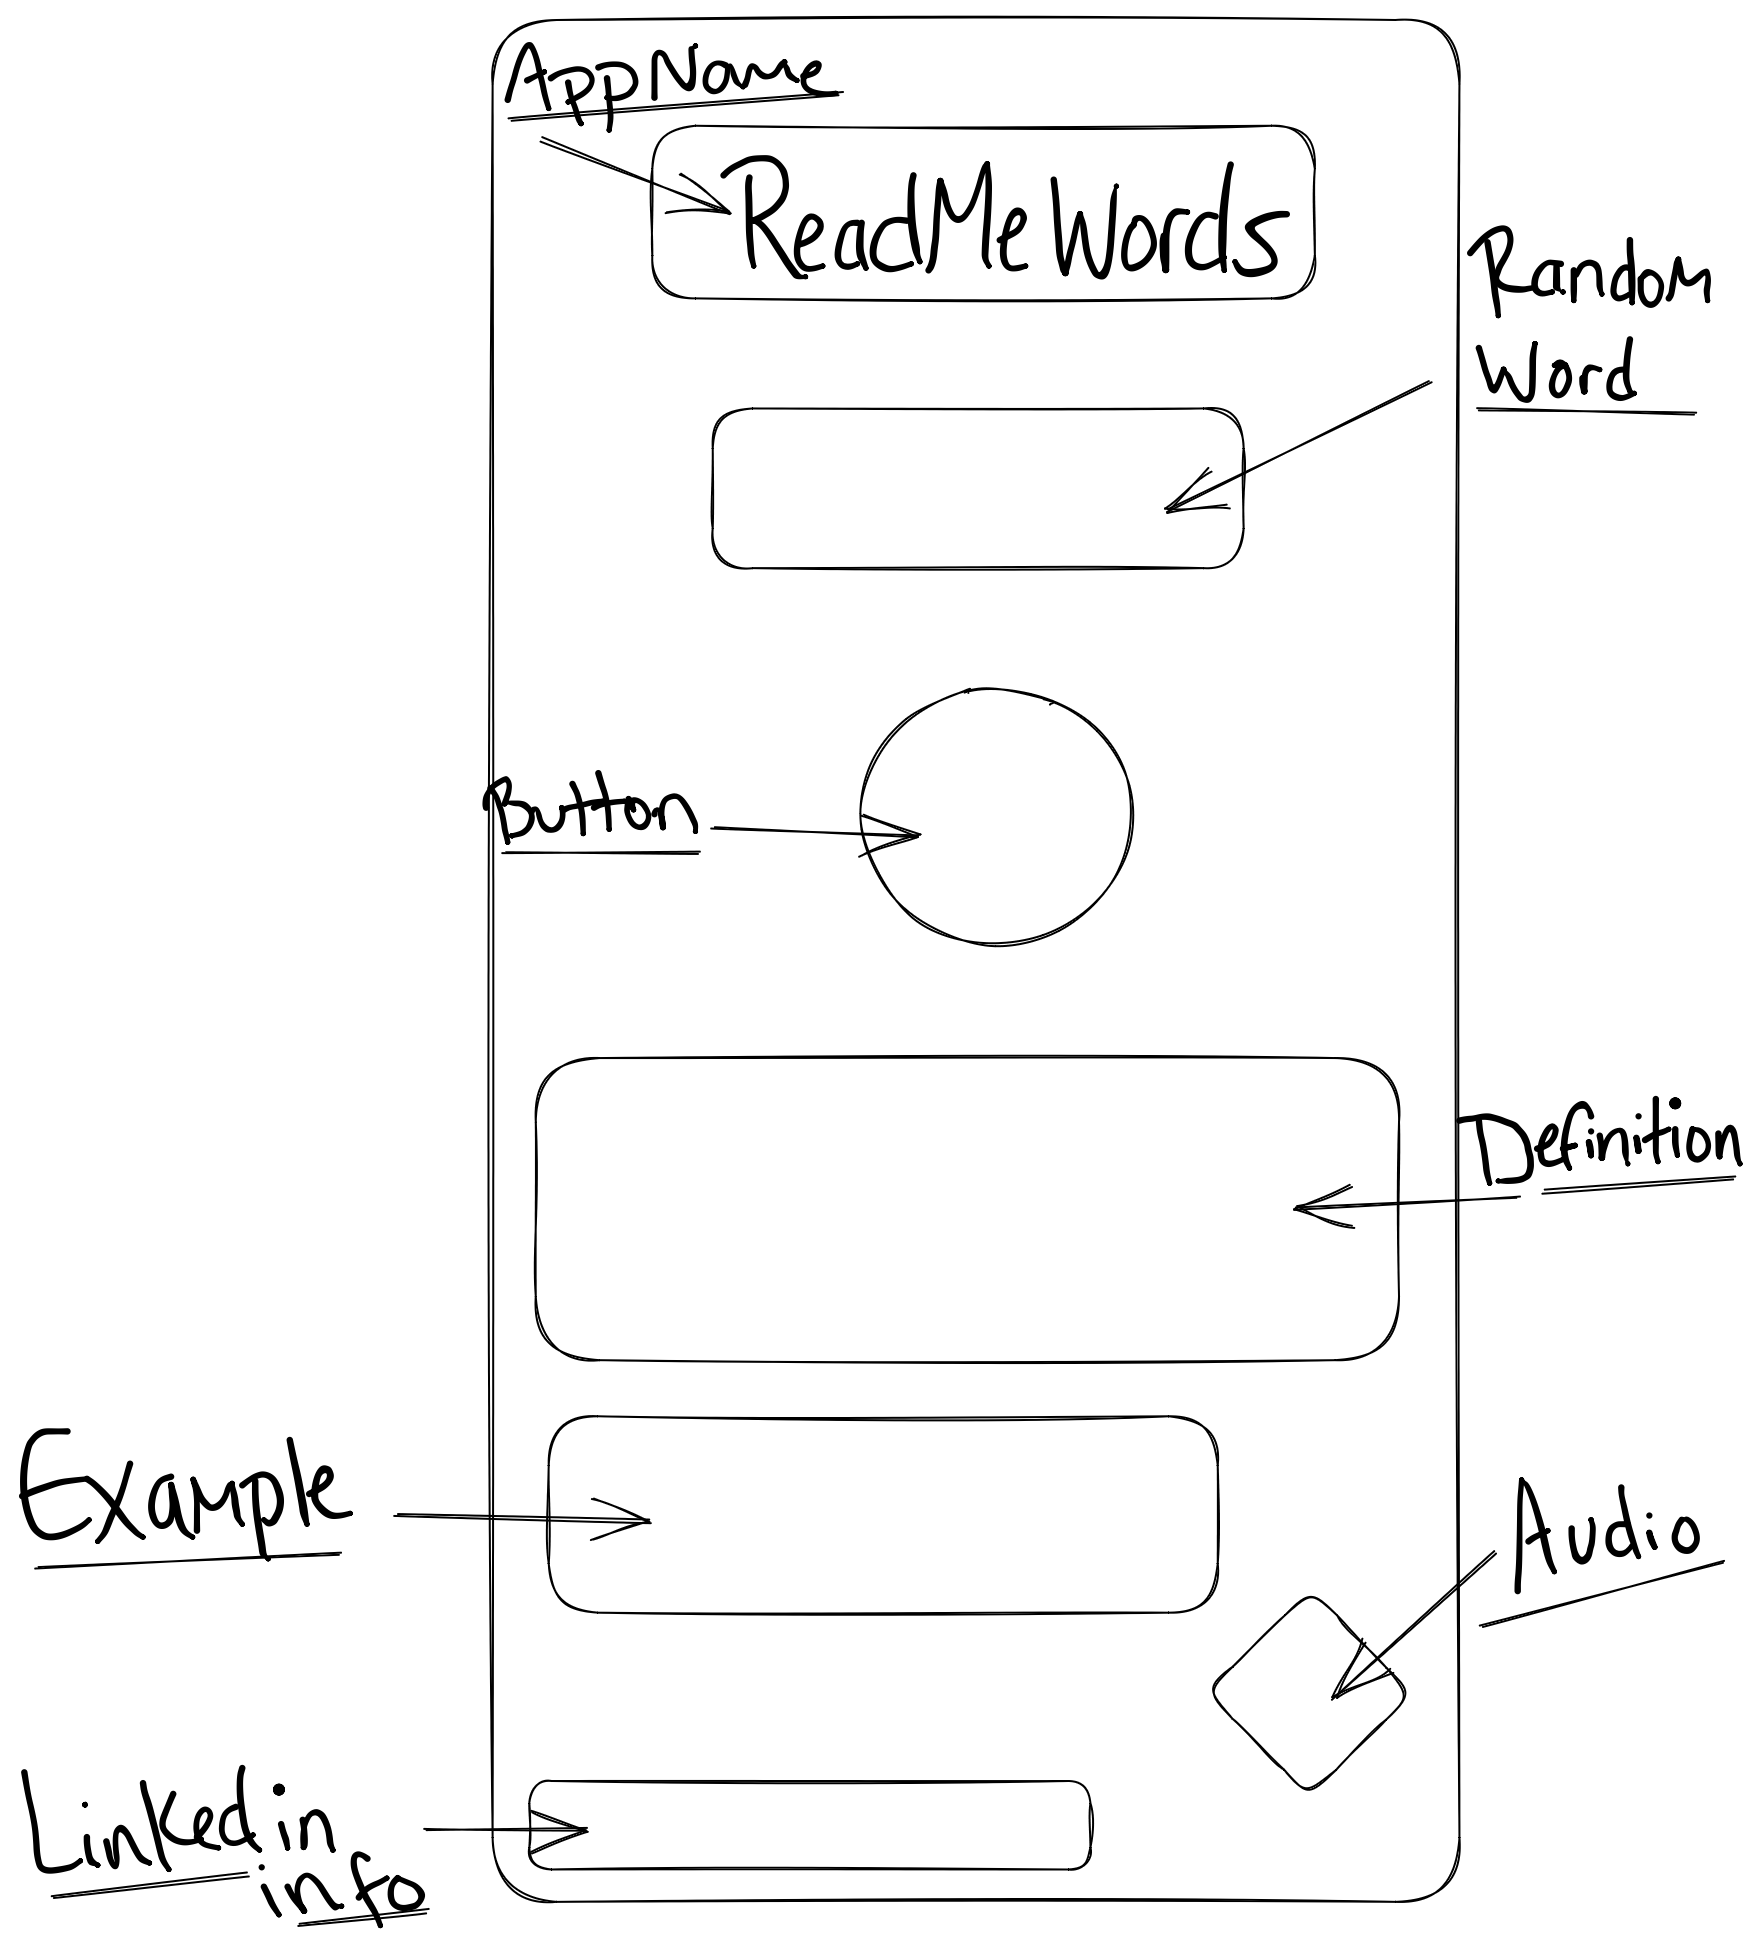 AppName
ReadMeWords
Random
Word
Button
Definition
Example
Audio
Linkedin
info